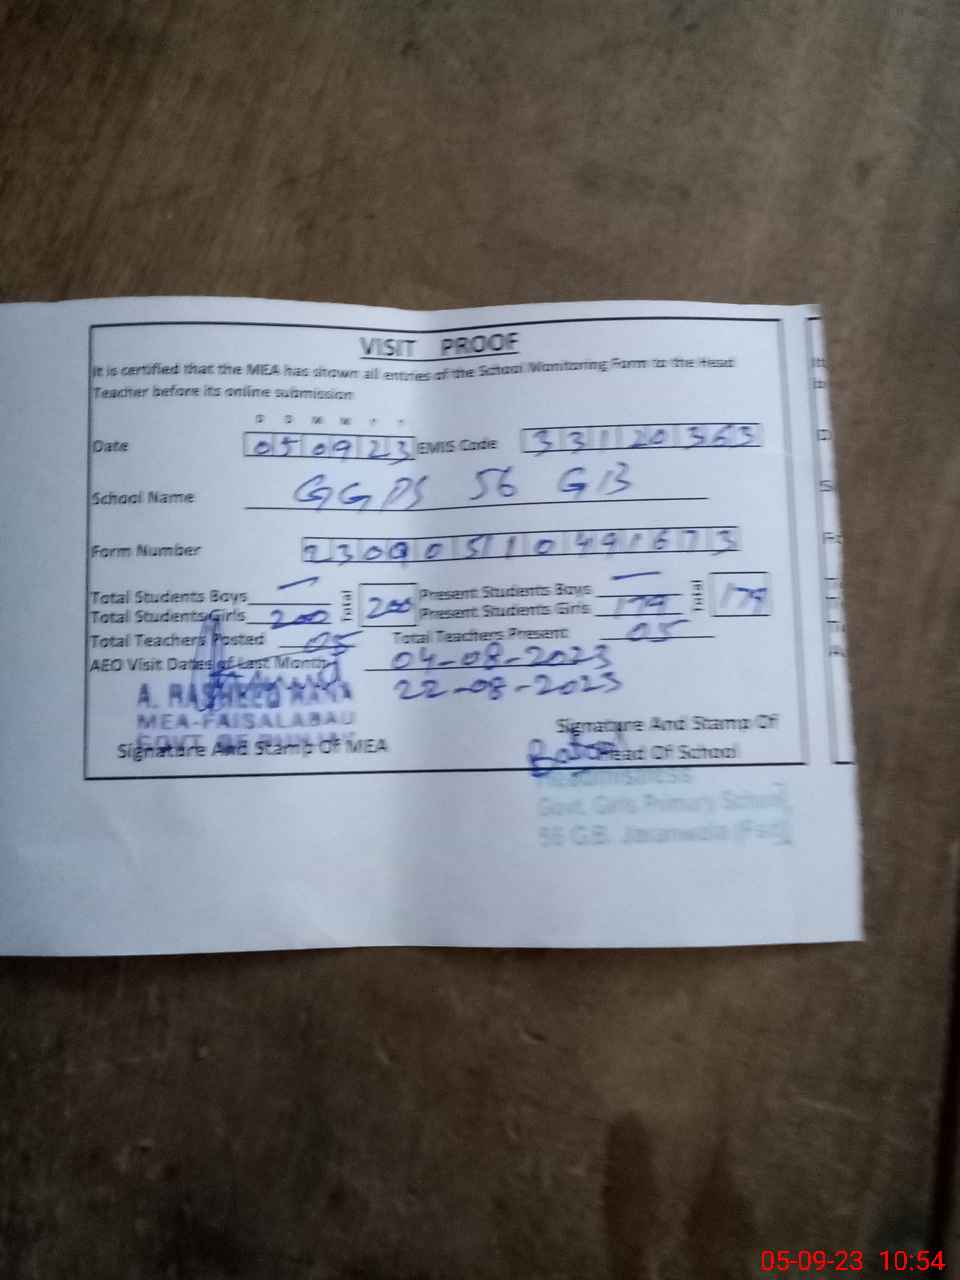 VISIT PROOF
It is certified that the MEA has shown all entries of the School Monitoring Form to the Head
Teacher before its online submission
D D M M Y Y
Date 050923 EMIS Code 33120363
School Name GGPS 56 GB
Form Number
Total Students Boys — Present Students Boys —
Total Students Girls 200 200 Present Students Girls 179 179
Total Teachers Posted 05 Total Teachers Present 05
AEO Visit Dates of Last Month 04-08-2023
22-08-2023
A. RASHEED
MEA-FAISALABAD
GOVT OF PUNJAB
Signature And Stamp Of MEA
Signature And Stamp Of
Head Of School
Headmistress
Govt. Girls Primary School,
56 G.B. Jaranwala (Fsd)
05-09-23 10:54